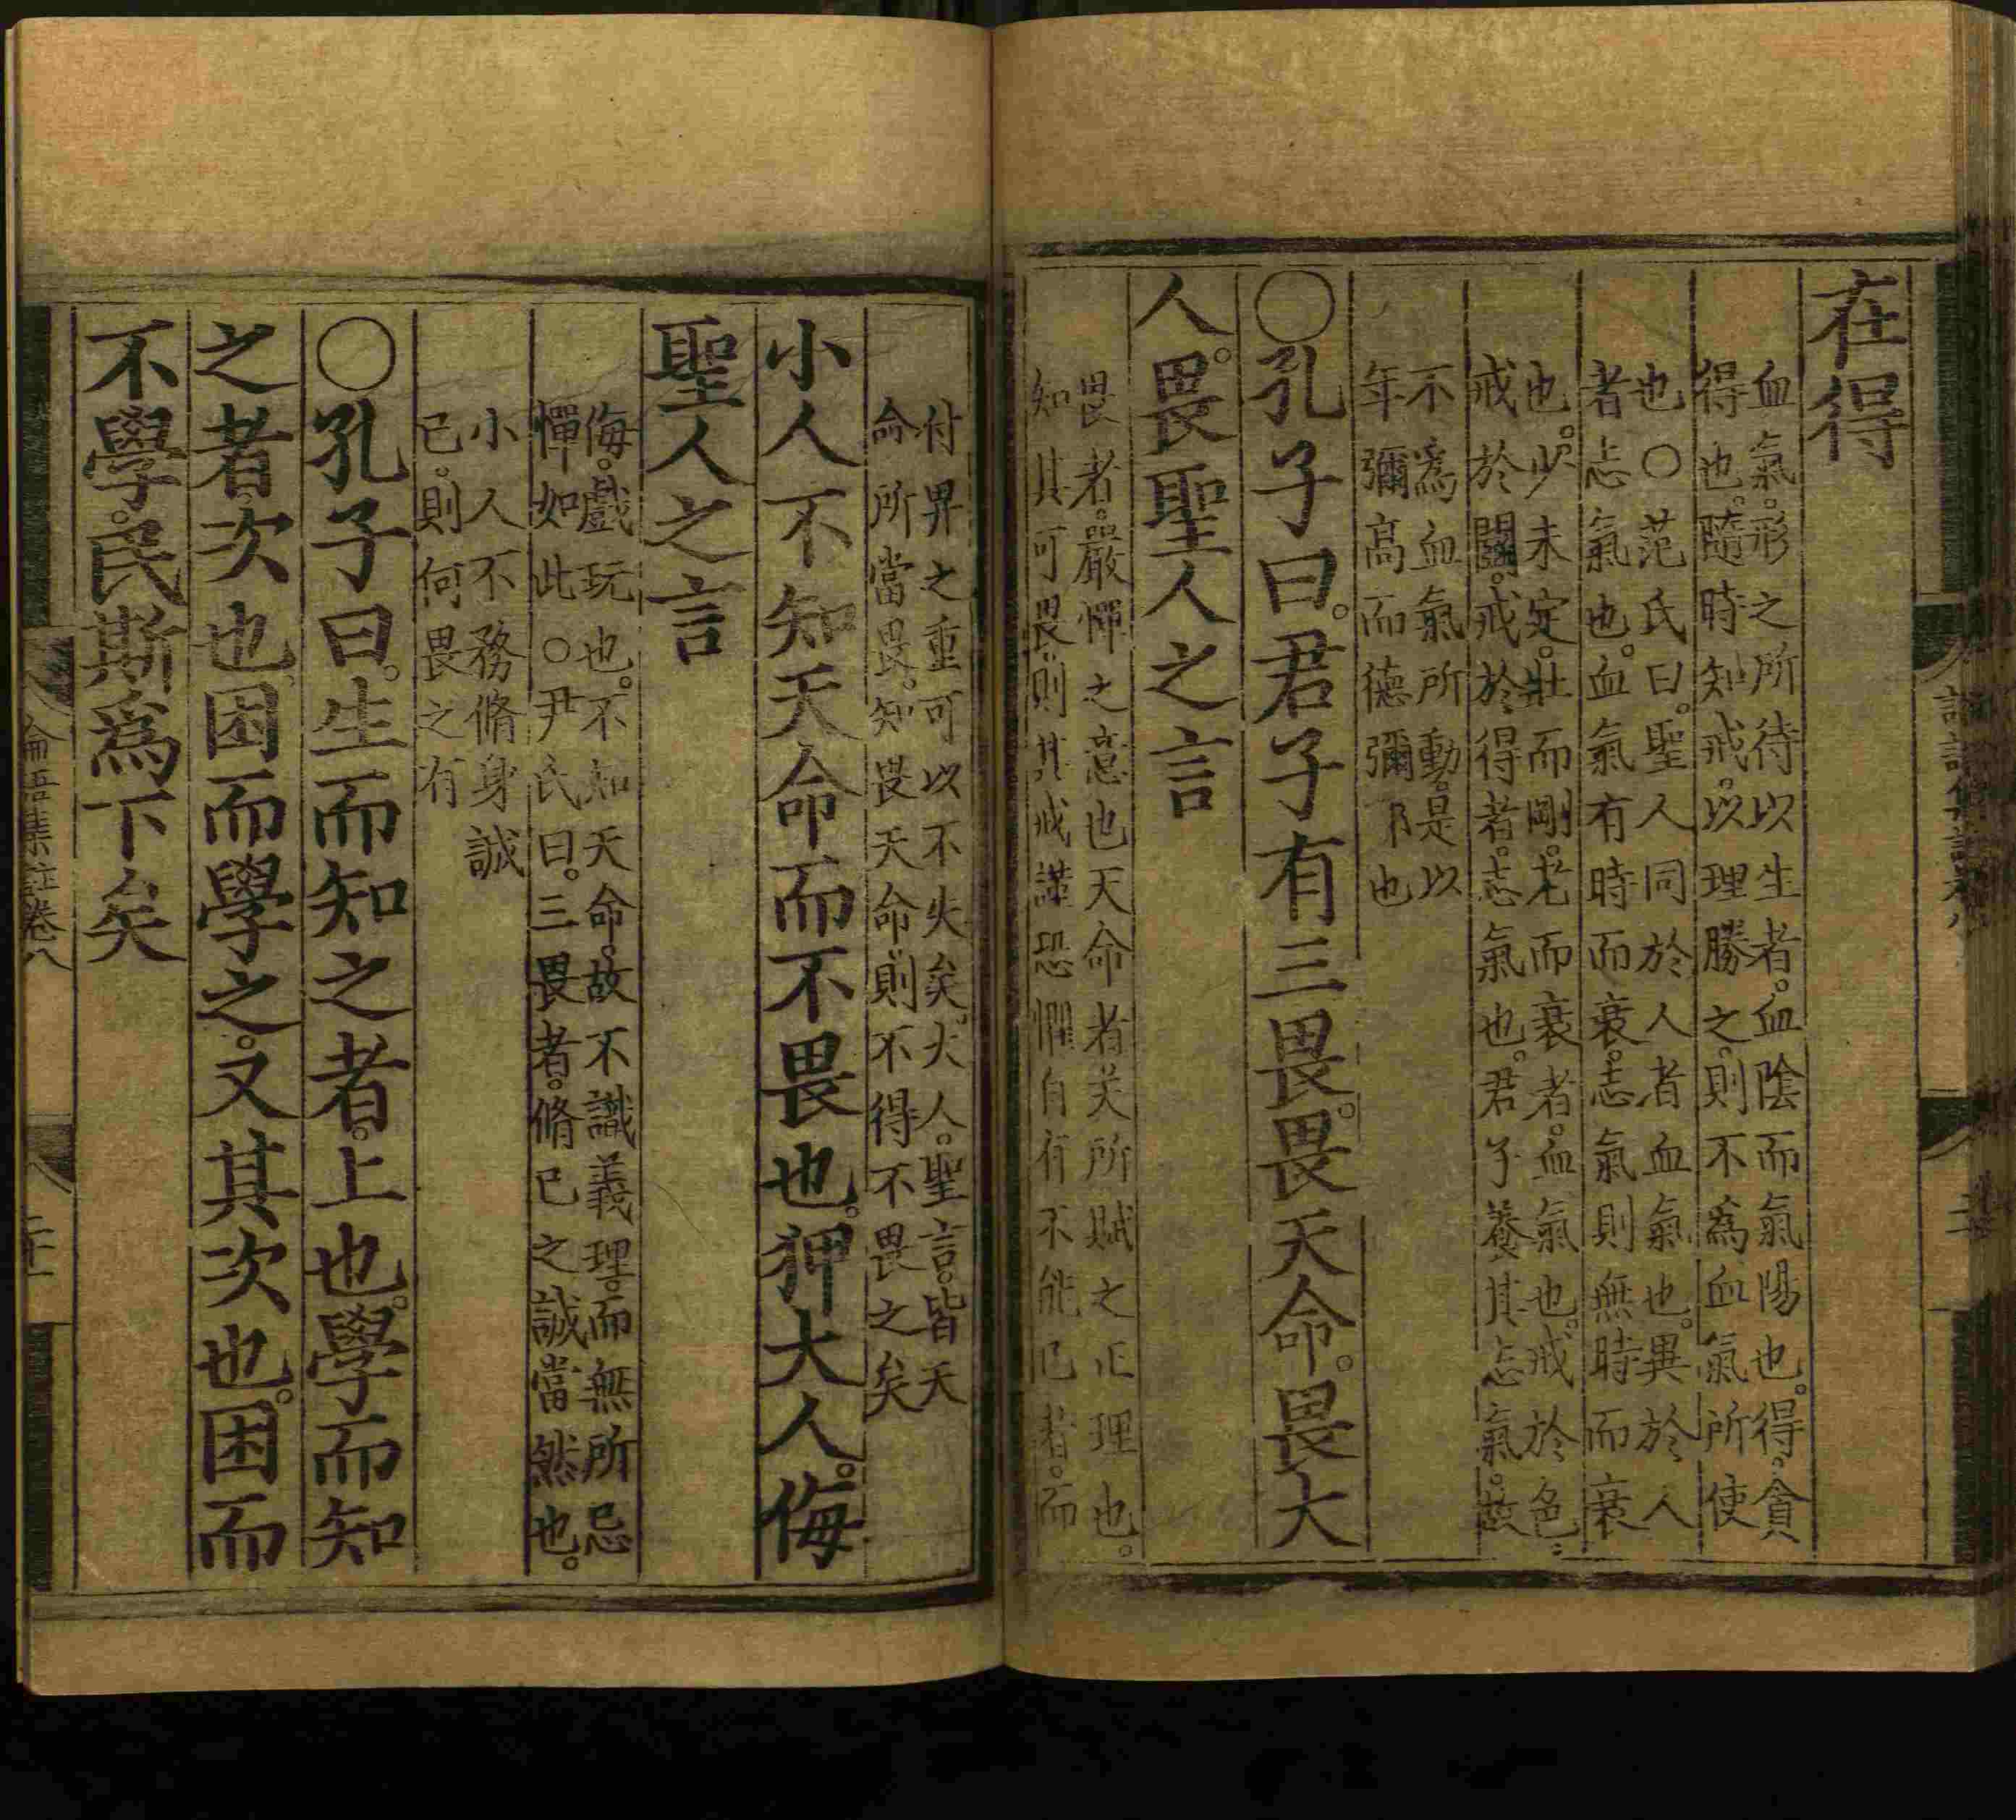 在得
血氣。形之所待以生者。血陰而氣陽也。得。貪
得也。隨時知戒。以理勝之。則不為血氣所使
也○范氏曰。聖人同於人者血氣也。異於人
者志氣也。血氣有時而衰。志氣則無時而衰
也。少未定。壯而剛。老而衰者。血氣也。戒於色。
戒於鬭。戒於得者。志氣也。君子養其志氣。故
不為血氣所動。是以
年彌高而德彌卲也
○孔子曰。君子有三畏。畏天命。畏大
人。畏聖人之言
畏者。嚴憚之意也天命者天所賦之正理也。
知其可畏。則其戒謹恐懼自有不能已者。而
付畀之重可以不失矣。大人。聖言。皆天
命所當畏。知畏天命。則不得不畏之矣
小人不知天命而不畏也。狎大人。侮
聖人之言
侮。戲玩也。不知天命。故不識義理。而無所忌
憚如此○尹氏曰。三畏者。脩已之誠當然也。
小人不務脩身誠
已。則何畏之有
○孔子曰。生而知之者。上也。學而知
之者。次也。困而學之。又其次也。困而
不學。民斯為下矣
論語集註卷八
二十一